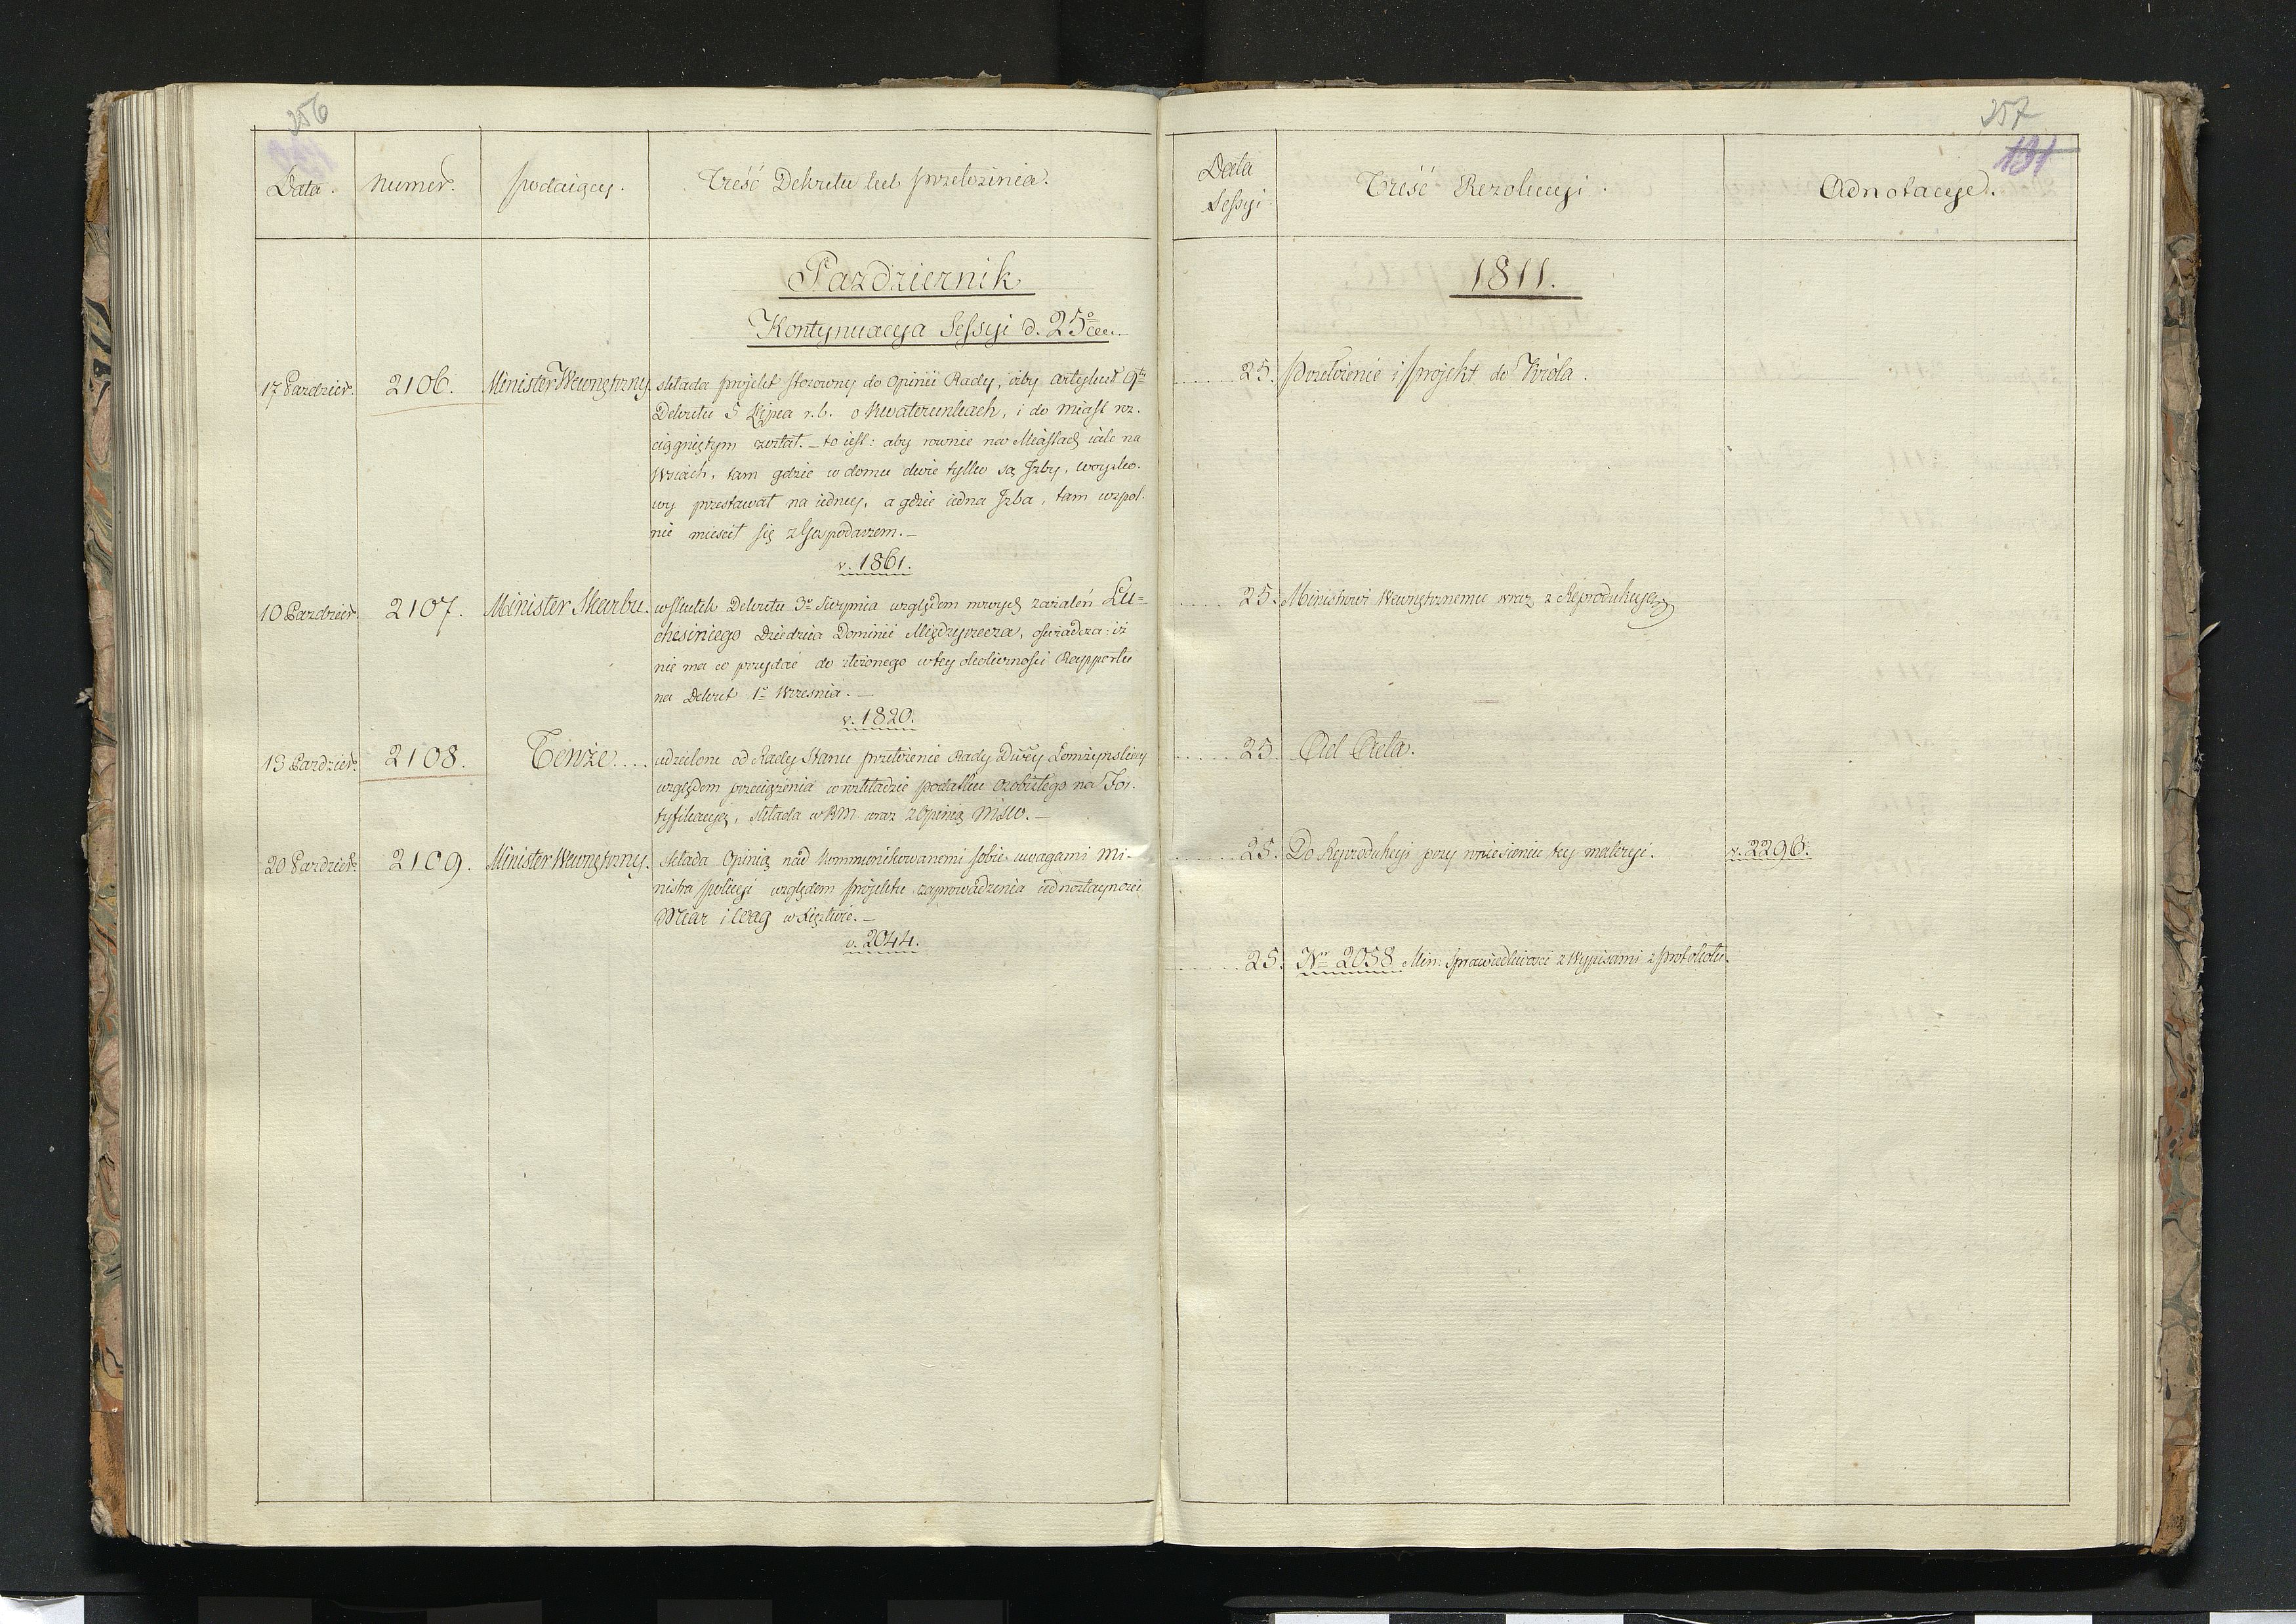 256
Data. Numer. Podaiący. Treść Dekretu lub Przełożenia.
Pazdziernik
Kontynuacya Sessyi d. 25º
17 Pazdzier. 2106. Minister Wewnętrzny. składa projekt stosowny do Opinii Rady, iżby Artykuł 9ty
Dekretu 5 Lipca r. b. o Kwaterunkach, i do Miast roz-
ciągniętym został. – to iest: aby rownie na Miastach iak na
Wsiach, tam gdzie w domu dwie tylko są Jzby, woysko-
wy przestawał na iedney, a gdzie iedna Jzba, tam wspol-
nie mieścił się z Gospodarzem. –
v. 1861.
10 Pazdzier. 2107. Minister Skarbu. w skutek Dekretu 3º Sierpnia względem nowych zażaleń Lu-
chesiniego Dziedzica Dominii Międzyrzecza, oświadcza: iż
nie ma co przydać do złożonego w tey okoliczności Rapportu
na Dekret 1º Września. –
v. 1820.
13 Pazdzier. 2108. Tenże.... udzielone od Rady Stanu przełożenie Rady Dwey Łomżyńskiey
względem przeciążenia w rozkładzie podatku osobistego na For-
tyfikacyą, składa w RM wraz z Opinią
20 Pazdzier. 2109. Minister Wewnętrzny. składa Opinią nad kommunikowanemi sobie uwagami Mi-
nistra Policyi względem projektu zaprowadzenia iednostayności
Miar i Wag w Xięstwie. –
v. 2044.
257
131
Data Sessyi Treść Rezolucyi. Adnotacye.
1811.
25. Przełożenie i Projekt do Króla.
25. Ministrowi Wewnętrznemu wraz z Reprodukcyą
25. Ad Acta.
25. Do Reprodukcyi przy wniesieniu tey materyi. v. 2296.
25. Nro 2058 Min: Sprawiedliwości z Wypisami z Protokołu.